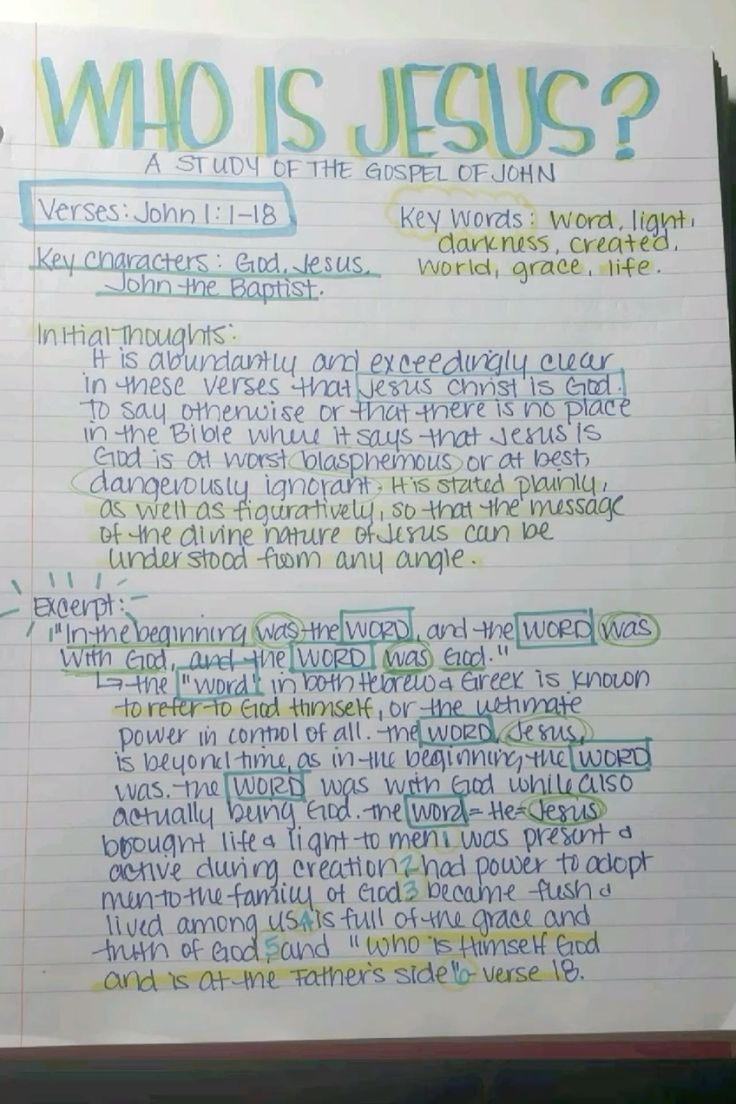 WHO IS JESUS?
A STUDY OF THE GOSPEL OF JOHN
Verses: John 1:1-18
Key Words: word, light,
darkness, created,
world, grace, life.
Key characters: God, Jesus,
John the Baptist.
Initial Thoughts:
It is abundantly and exceedingly clear
in these verses that Jesus Christ is God.
To say otherwise or that there is no place
in the Bible where it says that Jesus is
God is at worst blasphemous or at best,
dangerously ignorant. It is stated plainly,
as well as figuratively, so that the message
of the divine nature of Jesus can be
understood from any angle.
Excerpt:
"In the beginning was the WORD, and the WORD was
with God, and the WORD was God."
↳ the "word" in both Hebrew & Greek is known
to refer to God Himself, or the ultimate
power in control of all. The WORD, Jesus,
is beyond time, as in the beginning, the WORD
was. The WORD was with God while also
actually being God. The word = He = Jesus
brought life & light to men 1 was present &
active during creation 2 had power to adopt
men to the family of God 3 became flush &
lived among us 4 is full of the grace and
truth of God, 5 and "who is Himself God
and is at the Father's side" 6 - verse 18.